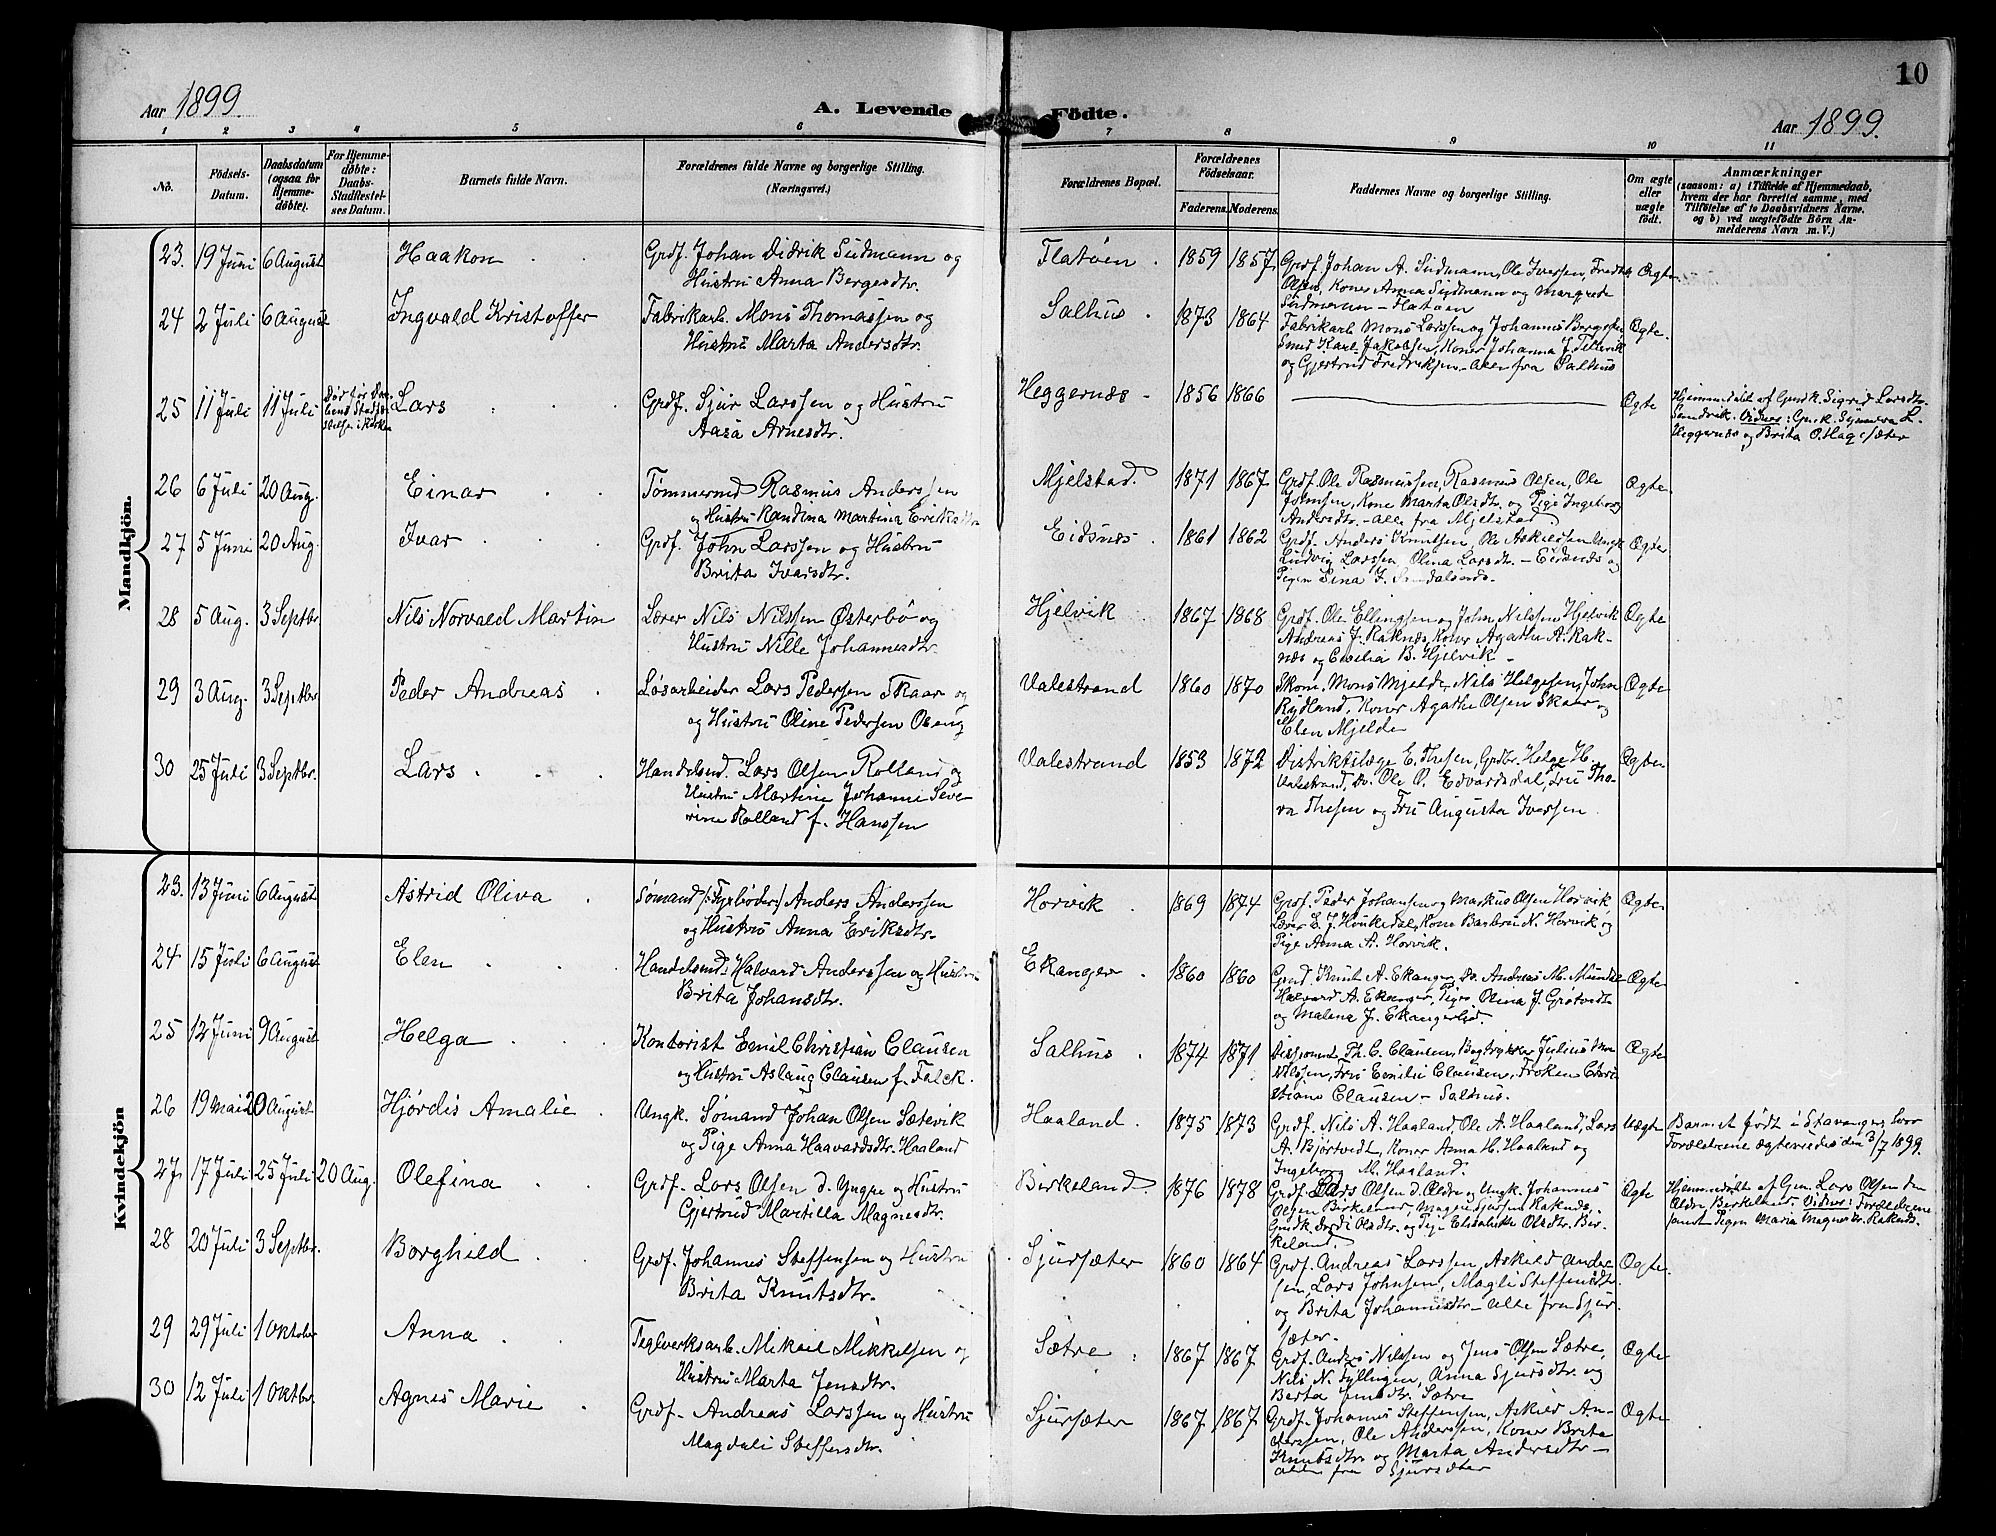 10
Aar 1899.
A. Levende Födte.
Aar 1899.
1 2 3 4 5 6 7 8 9 10 11
No.
Födsels-Datum.
Daabsdatum (ogsaa for Hjemme-döbte).
For Hjemme-döbte: Daabs-Stadfæstel-ses Datum.
Barnets fulde Navn.
Forældrenes fulde Navne og borgerlige Stilling.
(Næringsvei.)
Forældrenes Bopæl.
Forældrenes Födselsaar.
Faderens. Moderens.
Faddernes Navne og borgerlige Stilling.
Om ægte eller uægte födt.
Anmærkninger
(saasom: a) i Tilfælde af Hjemmedaab,
hvem der har forrettet samme, med
Tilföielse af to Daabsvidners Navne.
og b) ved uægtefödte Börn An-
melderens Navn m. V.)
Mandkjön.
23. 19 Juni 6 August Haakon Grdf. Johan Didrik Sudmann og
Hustru Anna Bergesdtr.
Flatøen 1859 1857 Grdf. Johan A. Sudmann, Ole Iversen, Fredrik
Olsen, Koner Anna Sudmann og Margrete
Sudmann - Flatøen
Ægte
24 2 Juli 6 August Ingvald Kristoffer Fabrikarb. Mons Thomassen og
Hustru Marta Andersdtr.
Salhus 1873 1864 Fabrikarb Mons Larssen og Johannes Bergesen
Smed Karl Jakobsen, Koner Johanna J.
og Gjertrud Fredriksen - alle fra Salhus
Ægte
25 11 Juli 11 Juli Lars Grdf. Sjur Larssen og Hustru
Aasa Arnesdtr.
Heggernæs 1856 1866 Ægte
Hjemmedøbt af Gmdk. Sigrid Larsdtr.
Sandvik. Vidner: Gmk. Synneva L.
Heggernæs og Brita O. Hagesæter
26 6 Juli 20 Aug. Einar Tømmermd Rasmus Anderssen
og Hustru Randina Martina Eriksdtr
Mjelstad. 1871 1867 Grdf. Ole Rasmussen, Rasmus Olsen, Ole
Johnsen, Kone Marta Olsdtr. og Pige Ingeborg
Andersdtr. - alle fra Mjelstad.
Ægte
27 5 Juni 20 Aug. Ivar Grdf. John Larssen og Hustru
Brita Ivarsdtr.
Eidsnes 1861 1862 Grdf. Anders Knutsen, Ole Askildsen Ungk
Ludvig Larssen, Olina Larsdtr. - Eidsnes og
Pigen Sina J.
Ægte
28 5 Aug. 3 Septbr. Nils Norvald Martin Lærer Nils Nilssen Østerbø og
Hustru Nille Johannesdtr.
Hjelvik 1867 1868 Grdf. Ole Ellingsen og John Nilssen Hjelvik
Andreas J. Raknes, Koner Agathe A. Rak-
næs og Cecilia B. Hjelvik -
Ægte
29 3 Aug. 3 Septbr Peder Andreas Løsarbeider Lars Pedersen Skaar og
og Hustru Oline Pedersen
Valestrand 1860 1870 Skom. Mons Mjelde, Nils Helgesen, John
Rydland, Koner Agathe Olsen Skaar og
Elen Mjelde
Ægte
30 25 Juli 3 Septbr. Lars Handelsmd. Lars Olsen Rolland og
Hustru Martine Johanne Seve-
rine Rolland f. Hanssen
Valestrand 1853 1872 Distriktslæge E. Thesen, Grdbr. Helge H.
Valestrand, Do. Ole O. Edvardsdal, Fru Tho-
ra Thesen og Fru Augusta Iversen
Ægte
Kvindekjön
23. 13 Juni 6 August Astrid Oliva Sømand /:Fyrbøder:/ Anders Anderssen
og Hustru Anna Eriksdtr.
Horvik 1869 1874 Grdf. Peder Johansen og Markus Olsen Horvik,
Lærer L. J. Houkedal, Kone Barbru N. Horvik og
Pige Anna A. Horvik.
Ægte
24 15 Juli 6 August Elen Handelsmd. Halvard Anderssen og Hustru
Brita Johansdtr.
Ekanger 1860 1860 Gmd. Knut A. Ekanger, Do. Andreas M. Mundal
Halvard A. Ekanger, Piger Olina J. Grøtvedt
og Malena J. Ekangerlid.
Ægte
25 12 Juni 9 August Helga Kontorist Emil Christian Clausen
og Hustru Aslaug Clausen f. Falck.
Salhus 1874 1871 Disponent Th. C. Clausen, Bogtrykker Julius
Nilssen, Fru Emilie Clausen, Frøken Chri-
stiane Clausen - Salhus.
Ægte
26 19 Mai 20 August Hjørdis Amalie Ungk. Sømand Johan Olsen Sætevik
og Pige Anna Haavardsdtr. Haaland
Haaland 1875 1873 Grdf. Nils A. Haaland, Ole A. Haaland, Lars
A. Bjørtvedt, Koner Anna H. Haaland og
Ingeborg M. Haaland.
Uægte Barnet født i Stavanger, hvor
Forældrene ægteviedes den 3/7 1899.
27. 17 Juli 25 Juli 20 Aug. Olefina Grdf. Lars Olsen d. Yngre og Hustru
Gjertrud Martilla Magnesdtr.
Birkeland. 1876 1878 Grdf. Lars Olsen d. Ældre og Ungk. Johannes
Olsen Birkeland, Magne Sjursen Raknes,
Gmdk. Olsdtr. og Pige Elisabeth Olsdtr. Bir-
keland.
Ægte
Hjemmedøbt af Gm. Lars Olsen den
Ældre Birkeland. Vidner: Forældrene
samt Pigen Maria Magnesdtr. Raknes.
28 20 Juli 3 Septbr. Borghild Grdf. Johannes Steffensen og Hustru
Brita Knutsdtr.
Sjursæter 1860 1864 Grdf. Andreas Larssen, Askild Anders-
sen, Lars Johnsen, Magli Steffensdtr.
og Brita Johannesdtr - alle fra Sjur-
sæter.
Ægte
29 29 Juli 1 Oktober Anna Teglverksarb. Mikael Mikkelsen og
Hustru Marta Jensdtr.
Sætre 1867 1867 Grdf. Anders Nilssen og Jens Olsen Sætre,
Nils N. Fyllingen, Anna Sjursdtr. og
Berta Jensdtr. Sætre
Ægte
30 12 Juli 1 Oktbr. Agnes Marie Grdf. Andreas Larssen og Hustru
Magdali Steffensdtr.
Sjursæter 1867 1867 Grdf. Johannes Steffensen, Askild An-
derssen, Ole Anderssen, Koner Brita
Knutsdtr. og Marta Andersdtr -
alle fra Sjursæter
Ægte